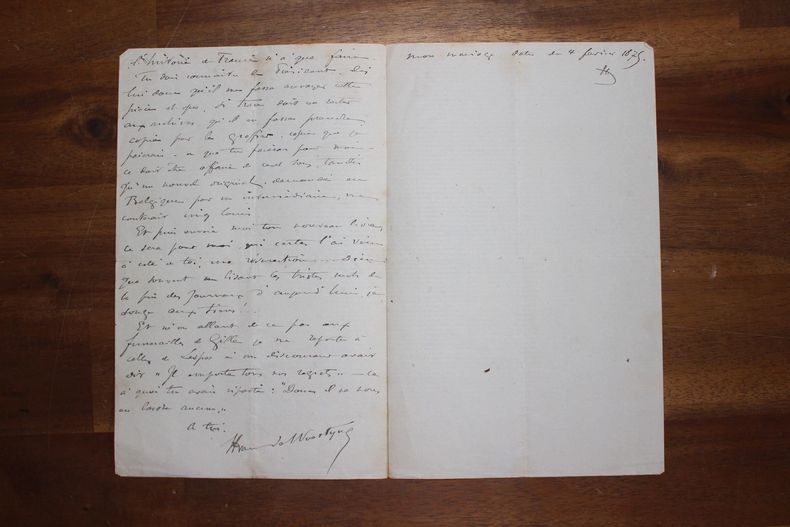 L'histoire de France n'a que faire.
Tu dois connaitre le President. Dis
lui donc qu'il me fasse envoyer cette
pièce et que, si trace doit en rester
aux archives, qu'il en fasse prendre
copie par le greffier, copie que je
paierai - ou que tu paieras pour moi -
ce doit être affaire de cent sous, tandis
qu'un nouvel original, demandé en
Belgique par un intermédiaire, me
coûterait cinq louis.
Et puis envoie moi ton nouveau livre,
ce sera pour moi, qui certes l'ai vécu
à côté de toi, une résurrection.
Que souvent en lisant les tristes mots de
la fin des journaux d'aujourd'hui je
songe aux tiens!..
Et m'en allant de ce pas aux
funerailles de Gille je me reporte à
celles de où un discoureur avait
dit "Il emporte tous nos regrets" - ce
à quoi tu avais riposté: "Donc il ne nous
en laisse aucun."
A toi.
de Woestyne
mon mariage date du 4 février 1875.
H